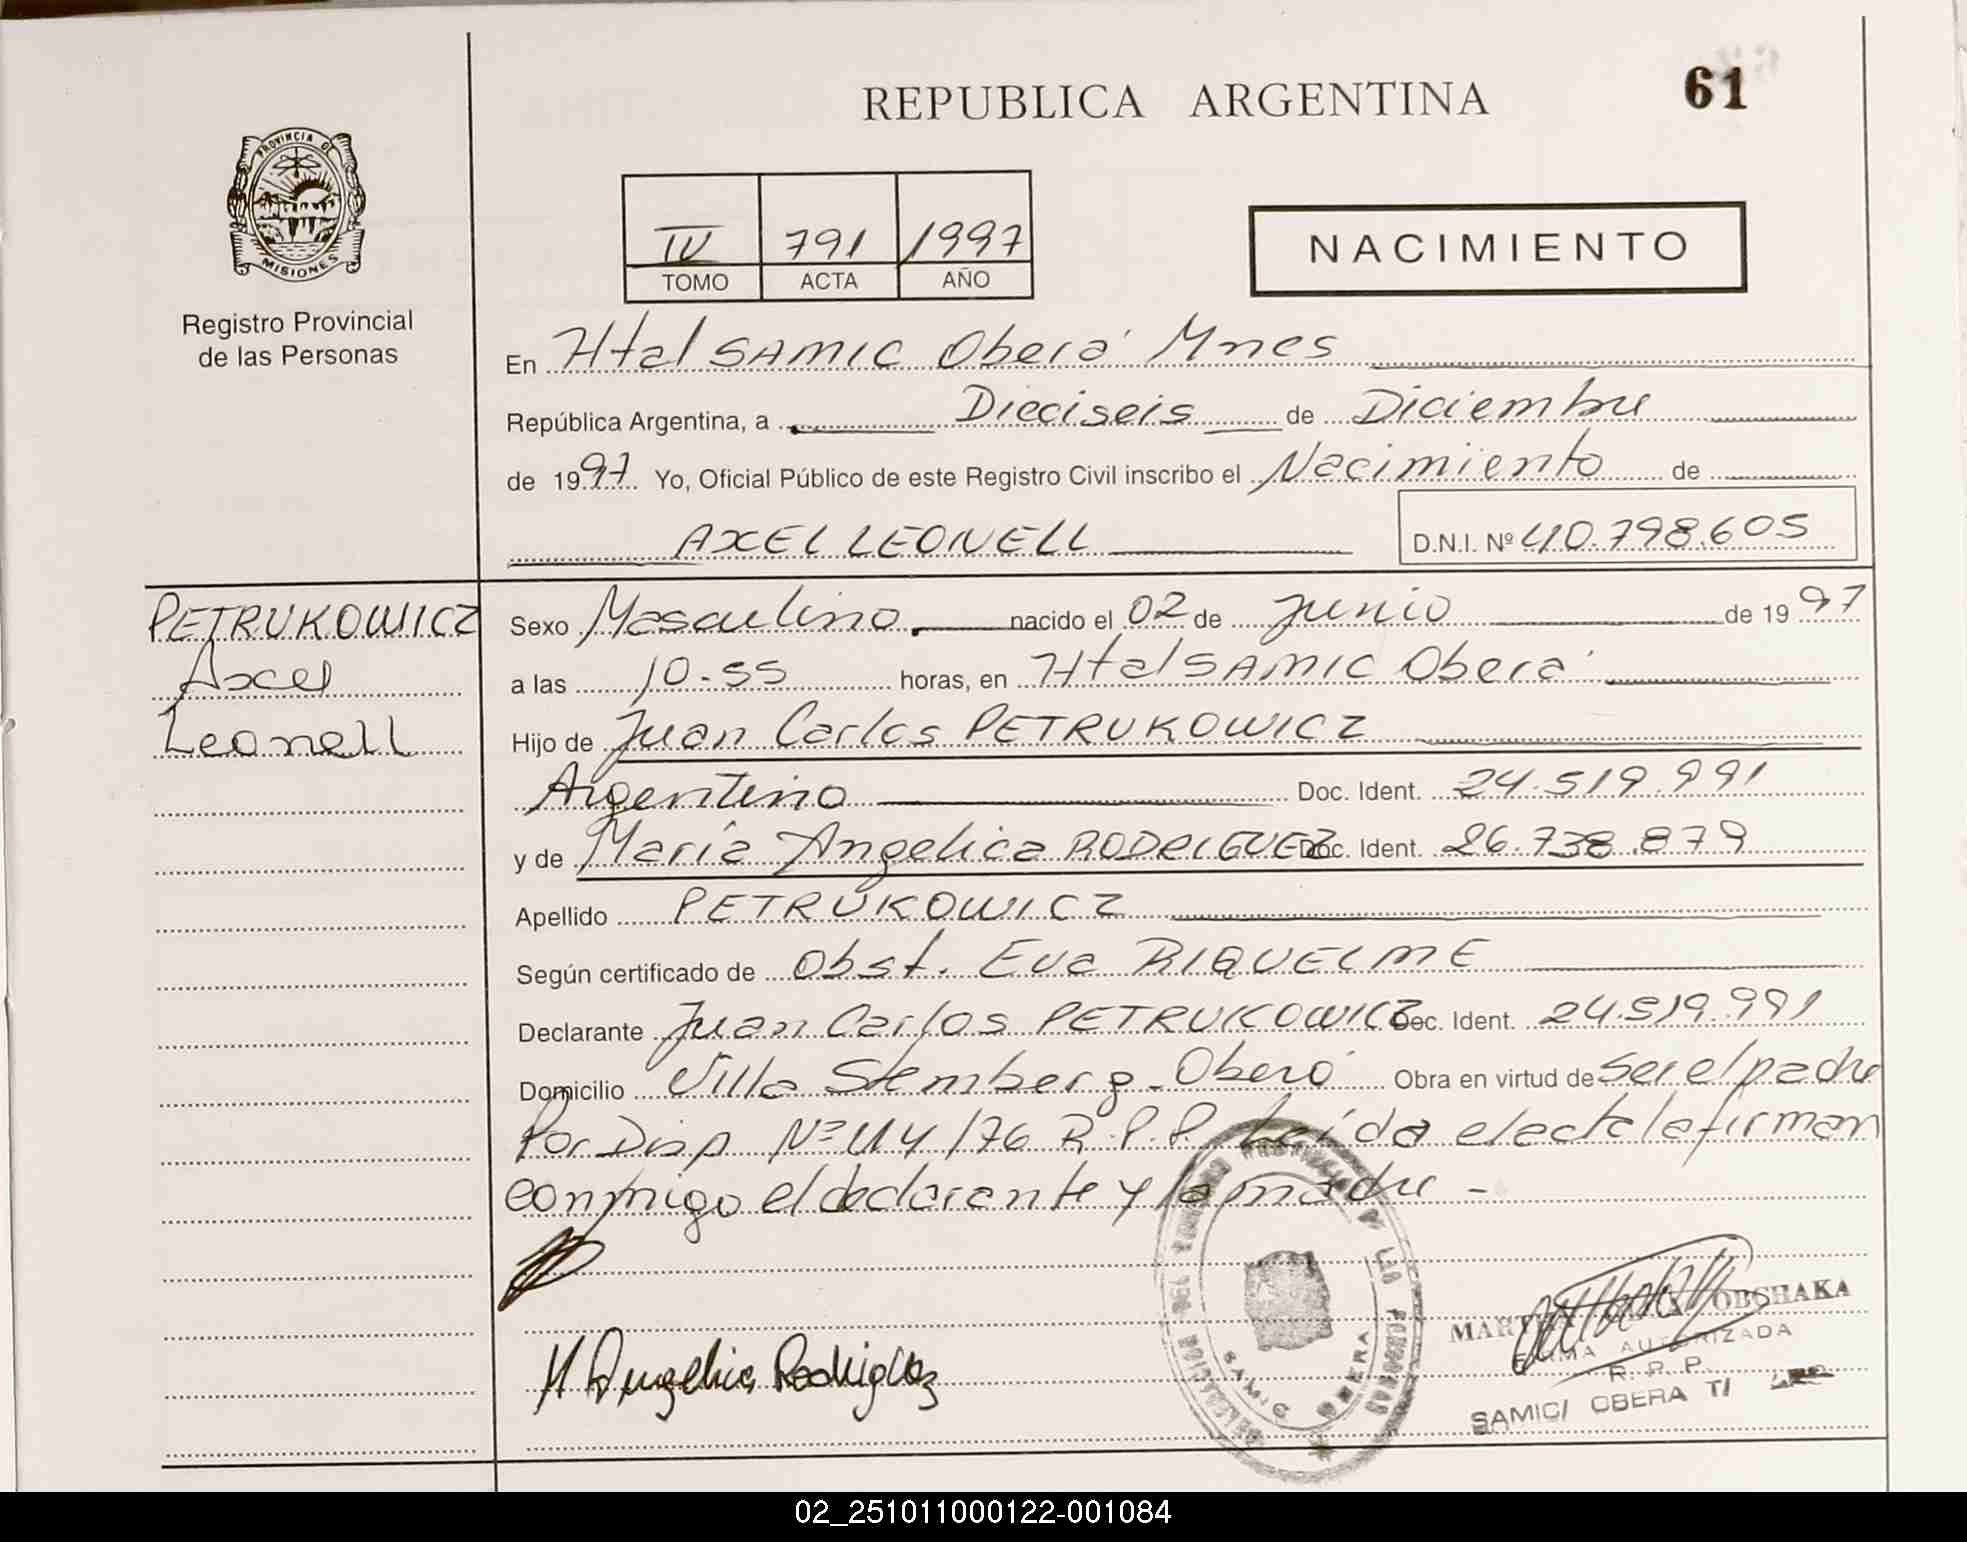 REPUBLICA ARGENTINA
61
PROVINCIA DE
MISIONES
Registro Provincial
de las Personas
IV 791 1997
TOMO ACTA AÑO
NACIMIENTO
En Htal SAMIC Oberá Mnes
República Argentina, a Dieciseis de Diciembre
de 1997. Yo, Oficial Público de este Registro Civil inscribo el Nacimiento de
AXEL LEONELL D.N.I. Nº 40.798.605
PETRUKOWICZ
Axel
Leonell
Sexo Masculino nacido el 02 de Junio de 1997
a las 10.55 horas, en Htal SAMIC Oberá
Hijo de Juan Carlos PETRUKOWICZ
Argentino Doc. Ident. 24.519.991
y de María Angelica RODRIGUEZ Doc. Ident. 26.738.879
Apellido PETRUKOWICZ
Según certificado de Obst. Eva RIQUELME
Declarante Juan Carlos PETRUKOWICZ Doc. Ident. 24.519.991
Domicilio Villa Stemberg - Oberá Obra en virtud de ser el padre
Por Disp Nº 114/76 R.P.P. Leída el acta la firman
conmigo el declarante y la madre -
M Angelica Rodriguez
DELEGACION DEL REGISTRO PROVINCIAL DE LAS PERSONAS
SAMIC OBERA
OBSHAKA
FIRMA AUTORIZADA
R. P. P.
SAMIC/ OBERA
02_251011000122-001084